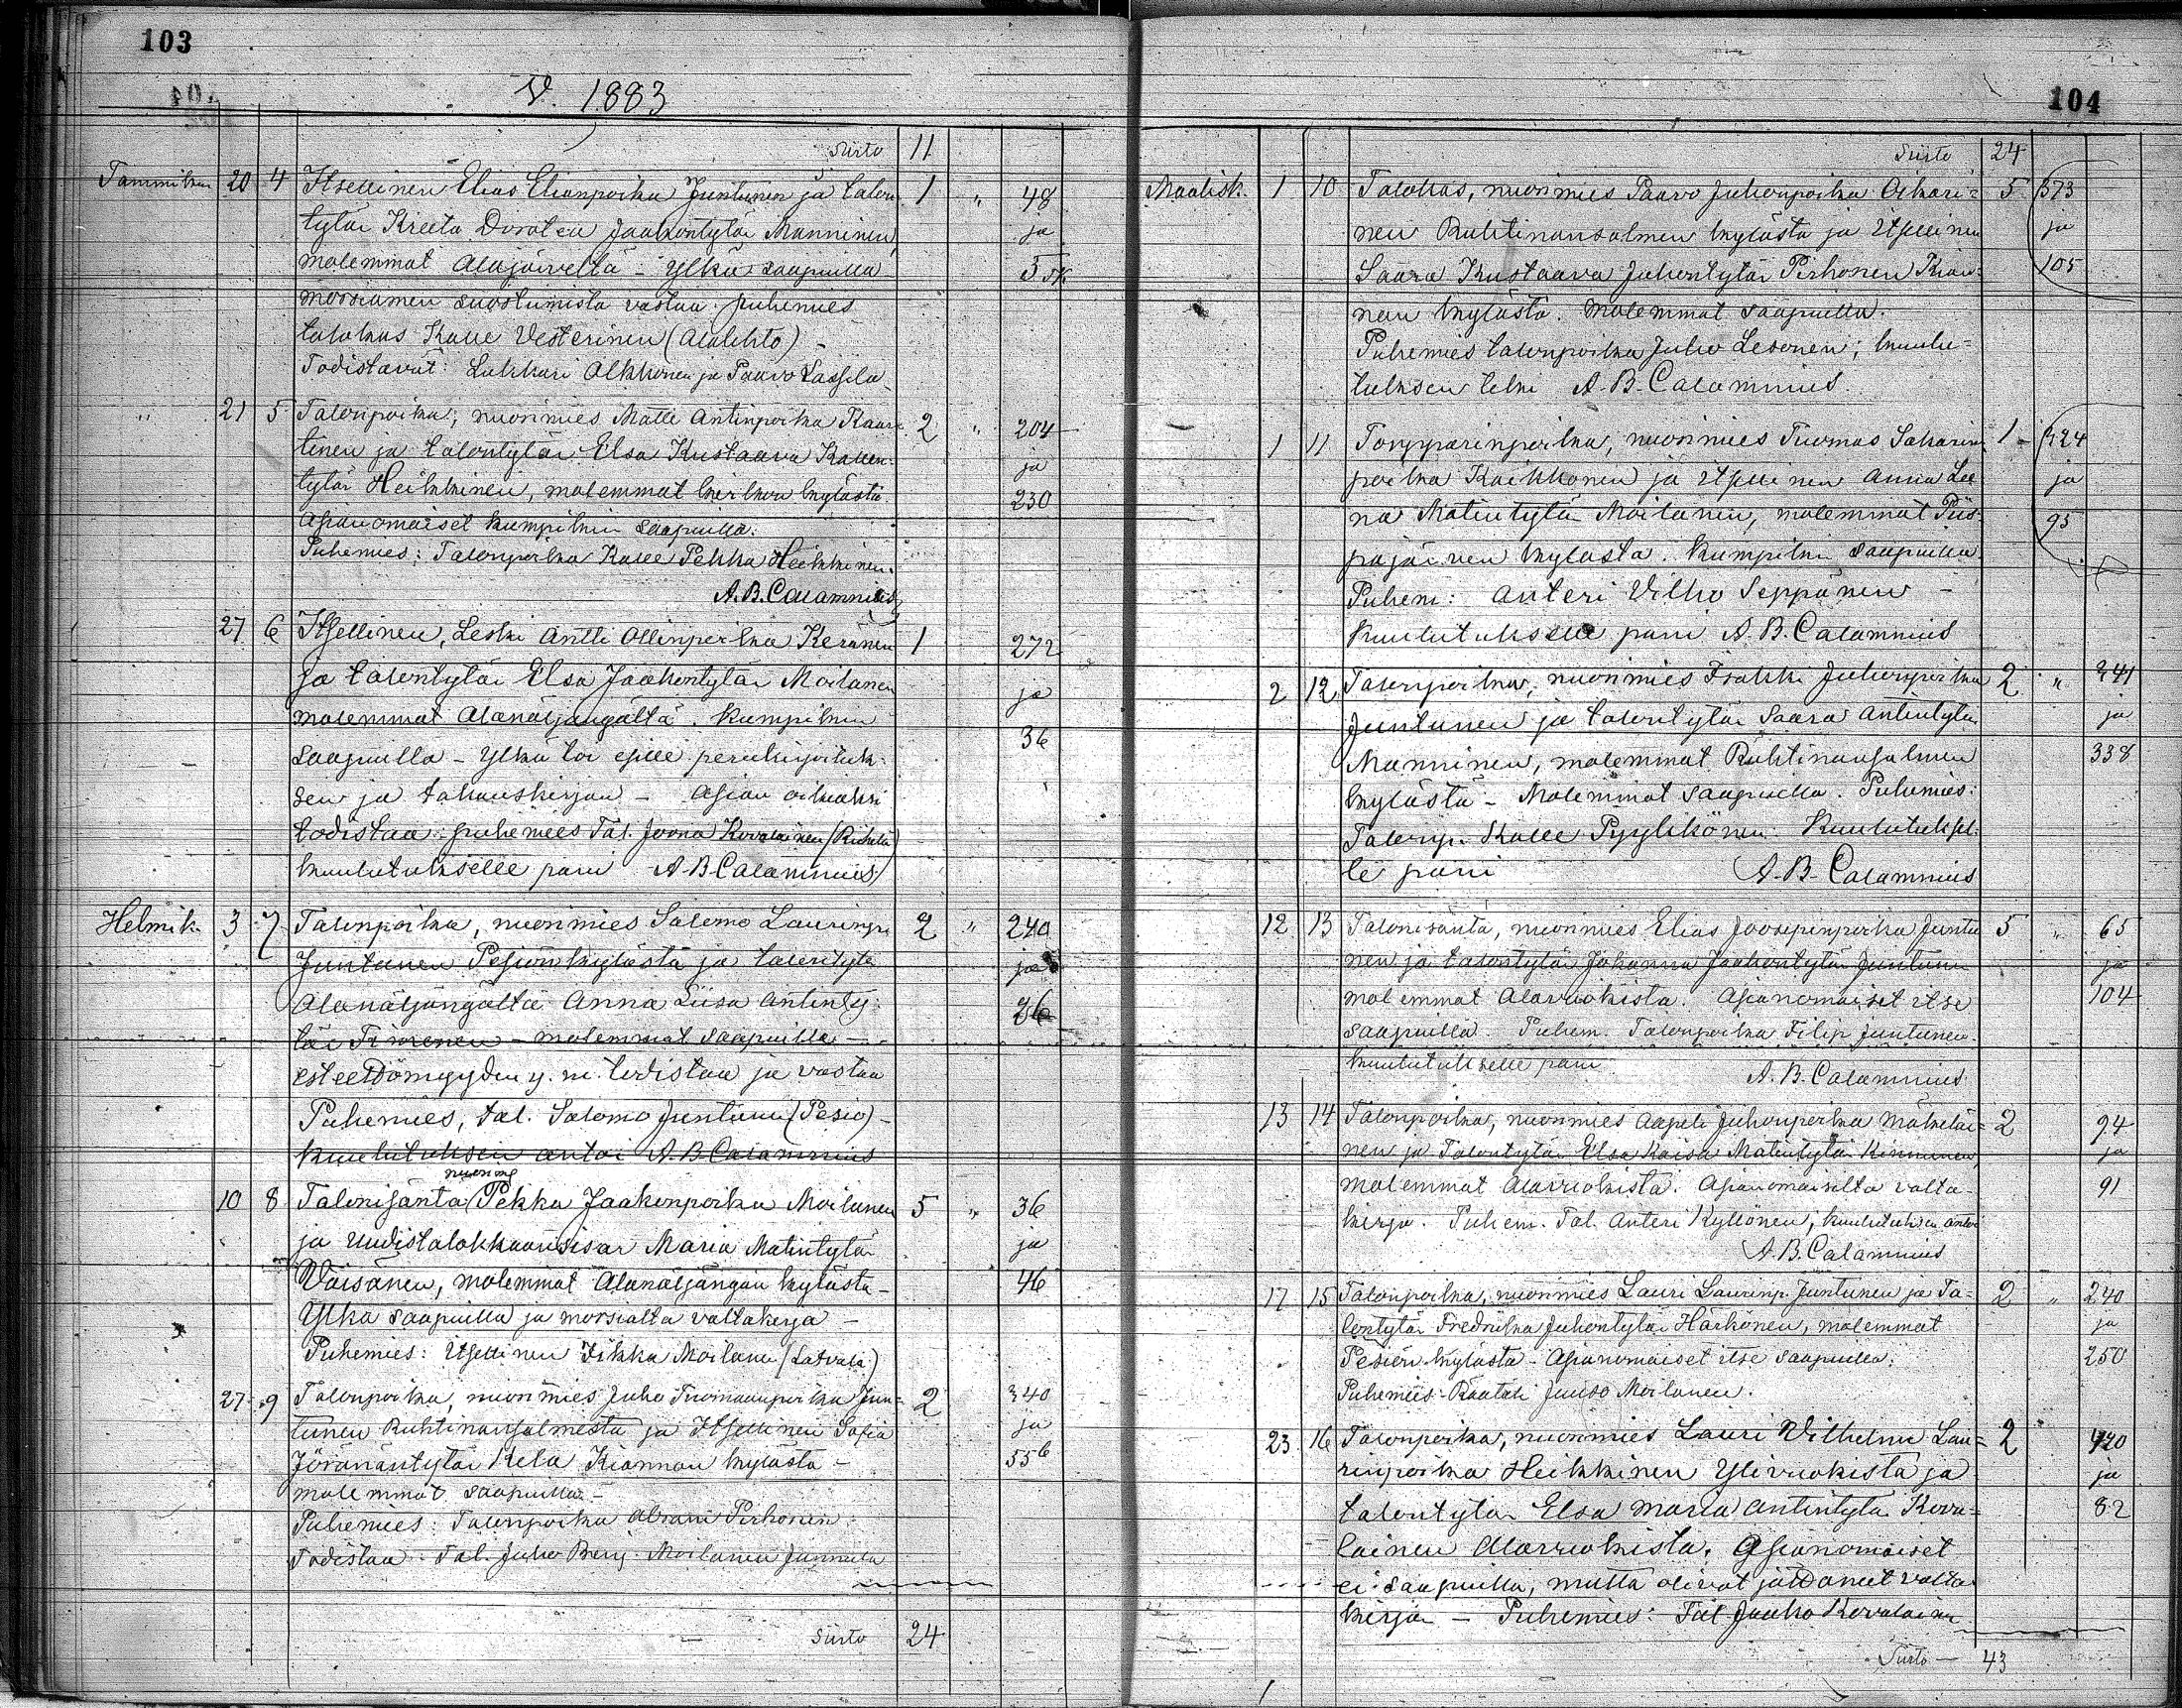 103
V. 1883
Siirto 11
Tammikuu 20 4 Itsellinen Elias Elianpoika Juntunen ja talon 1 " 48
tytär Kreeta Dorotea Jaakontytär Manninen, ja
molemmat Alajärveltä - Ylkä saapuilla
morsiamen suostumista vastaa puhemies
talokas Kalle Vesterinen (Alalehto) -
Todistavat: Lukkari Alkkonen ja Paavo Lassila
" 21 5 Talonpoika, nuorimies Matti Antinpoika Kaar- 2 " 204
tinen ja talontytär Elsa Kustaava Kallen- ja
tytär Heikkinen, molemmat kylästä 230
Asianomaiset kumpikin saapuilla.
Puhemies: Talonpoika Kalle Pekka Heikkinen.
A.B. Calamnius
27 6 Itsellinen, Leski Antti Ollinpoika Keränen 1 272
ja talontytär Elsa Jaakontytär Moilanen ja
molemmat Alanäljängältä. Kumpikin 36
saapuilla - Ylkä toi esille perukirjoituk-
sen ja takauskirjan - Asian oikiaksi
todistaa puhemies Tal. Joona Kovalainen
kuulutukselle pani A.B Calamnius
Helmik. 3 7 Talonpoika, nuorimies Salomo Laurinp. 2 " 240
Juntunen Pesiönkylästä ja talontytär ja
Alanäljängältä Anna Liisa Antinty- 36
tär - molemmat saapuilla -
esteettömyyden y. m. todistaa ja vastaa
Puhemies, tal. Salomo Juntunen (Pesiö) -
kuulutuksen antoi A.B. Calamnius
nuorimies
10 8 Talonisäntä Pekka Jaakonpoika Moilanen 5 " 36
ja Uudistalokkaan sisar Maria Matintytär ja
Väisänen, molemmat Alanäljängän kylästä - 46
Ylkä saapuilla ja morsialta valtakirja -
Puhemies: Itsellinen Iikka Moilanen (Latvala)
27 9 Talonpoika, nuorimies Juho Tuomaanpoika Jun- 2 340
tunen Ruhtinansalmesta ja Itsellinen Sofia ja
Jöränäntytär Kela Kiannan kylästä - 556
molemmat saapuilla -
Puhemies: Talonpoika Abram Pirhonen
Todistaa: Tal. Juho Benj. Moilanen Junnula
Siirto 24
104
Siirto 24
Maalisk. 1 10 Talokas, nuorimies Paavo Juhonpoika Oikari- 5 573
nen Ruhtinansalmen kylästä ja Itsellinen ja
Saara Kustaava Juhontytär Pirhonen Kian- 105
nan kylästä. Molemmat saapuilla.
Puhemies talonpoika Juho Lesonen; kuulu-
tuksen teki A.B. Calamnius.
1 11 Torpparinpoika, nuorimies Tuomas Sakarin 1 - 324
poika Kaikkonen ja itsellinen Anna Lee ja
na Matintytär Moilanen, molemmat Piis- 95
pajärven kylästä. Kumpikin saapuilla
Puhem: Anteri Vilho Seppänen -
Kuulutukselle pani A.B. Calamnius
2 12 Talonpoika, nuorimies Iisakki Juhonpoika 2 " 341
Juntunen ja talontytär Saara Antintytär ja
Manninen, molemmat Ruhtinansalmen 338
kylästä - Molemmat saapuilla. Puhemies:
Talonp. Kalle Pyykkönen. Kuulutuksel-
le pani A.B. Calamnius
12 13 Talonisäntä, nuorimies Elias Joosepinpoika Juntu 5 " 65
nen ja talontytär Johanna Jaakontytär Juntunen ja
molemmat Alavuokista. Asianomaiset itse 104
saapuilla. Puhem. Talonpoika Filip Juntunen.
Kuulutukselle pani A.B. Calamnius
13 14 Talonpoika, nuorimies Aapeli Juhonpoika Mäkeläi- 2 94
nen ja Talontytär Elsa Kaisa Matintytär Kinnunen, ja
molemmat Alavuokista. Asianomaiselta valta- 91
kirja. Puhem. Tal. Anteri Kyllönen, kuulutuksen antoi
A.B. Calamnius
17 15 Talonpoika, nuorimies Lauri Laurinp. Juntunen ja Ta- 2 " 240
lontytär Fredriika Juhontytär Härkönen, molemmat ja
Pesiön kylästä - Asianomaiset itse saapuilla. 250
Puhemies: Räätäli Juuso Moilanen.
23 16 Talonpoika, nuorimies Lauri Vilhelmi Lau- 2 " 420
rinpoika Heikkinen Ylivuokista ja ja
talontytär Elsa Maria Antintytär Kova- 82
lainen Alavuokista. Asianomaiset
ei saapuilla, mutta olivat jättäneet valta
kirja - Puhemies: Tal. Jaakko Kovalainen
Siirto - 43